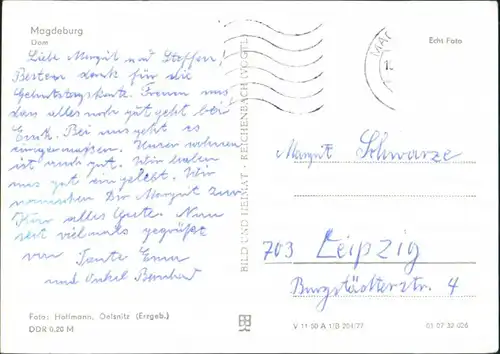 Magdeburg
Dom
Echt Foto
Liebe Margit und Steffen!
Besten dank für die
Geburtstagskarte. Freuen uns
das alles noch gut geht bei
Euch. Bei uns geht es
einigermaßen. Unser wohnen
ist auch gut. Wir haben
uns gut eingelebt. Wir
wünschen Dir Margit zur
Kur alles Gute. Nun
seit vielmals gegrüßt
von Tante Erna
und Onkel Bernhard
BILD UND HEIMAT · REICHENBACH (VOGTL)
Margit Schwarze
703 Leipzig
Burgstädterstr. 4
Foto: Hoffmann, Oelsnitz (Erzgeb.)
DDR 0,20 M
V 11 50 A 1/B 204/77
01 07 32 026